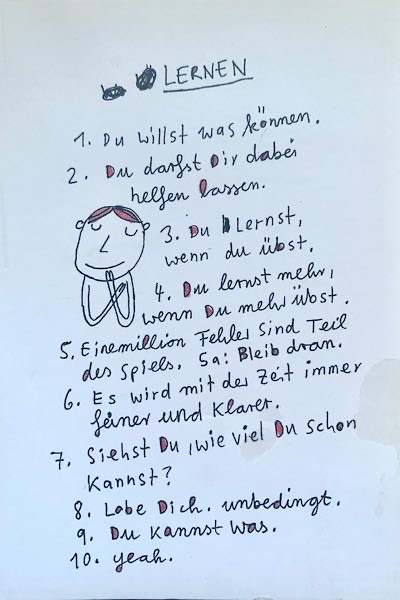 LERNEN
1. Du willst was können.
2. Du darfst Dir dabei
helfen lassen.
3. Du Lernst,
wenn du übst.
4. Du lernst mehr,
wenn Du mehr übst.
5. Einemillion Fehler sind Teil
des Spiels. 5a: Bleib dran.
6. Es wird mit der Zeit immer
feiner und klarer.
7. Siehst Du, wie viel Du schon
kannst?
8. Lobe Dich. unbedingt.
9. Du kannst was.
10. yeah.